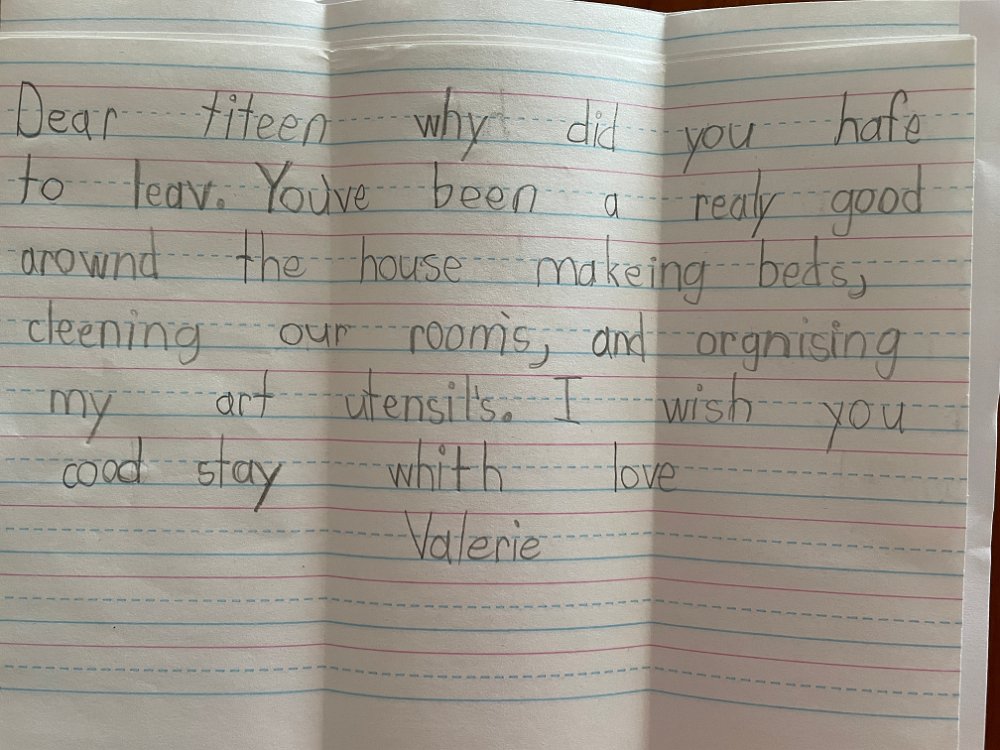 Dear titeen why did you hafe
to leav. You've been a realy good
arownd the house makeing beds,
cleening our room's, and orgnising
my art utensil's. I wish you
cood stay whith love
Valerie